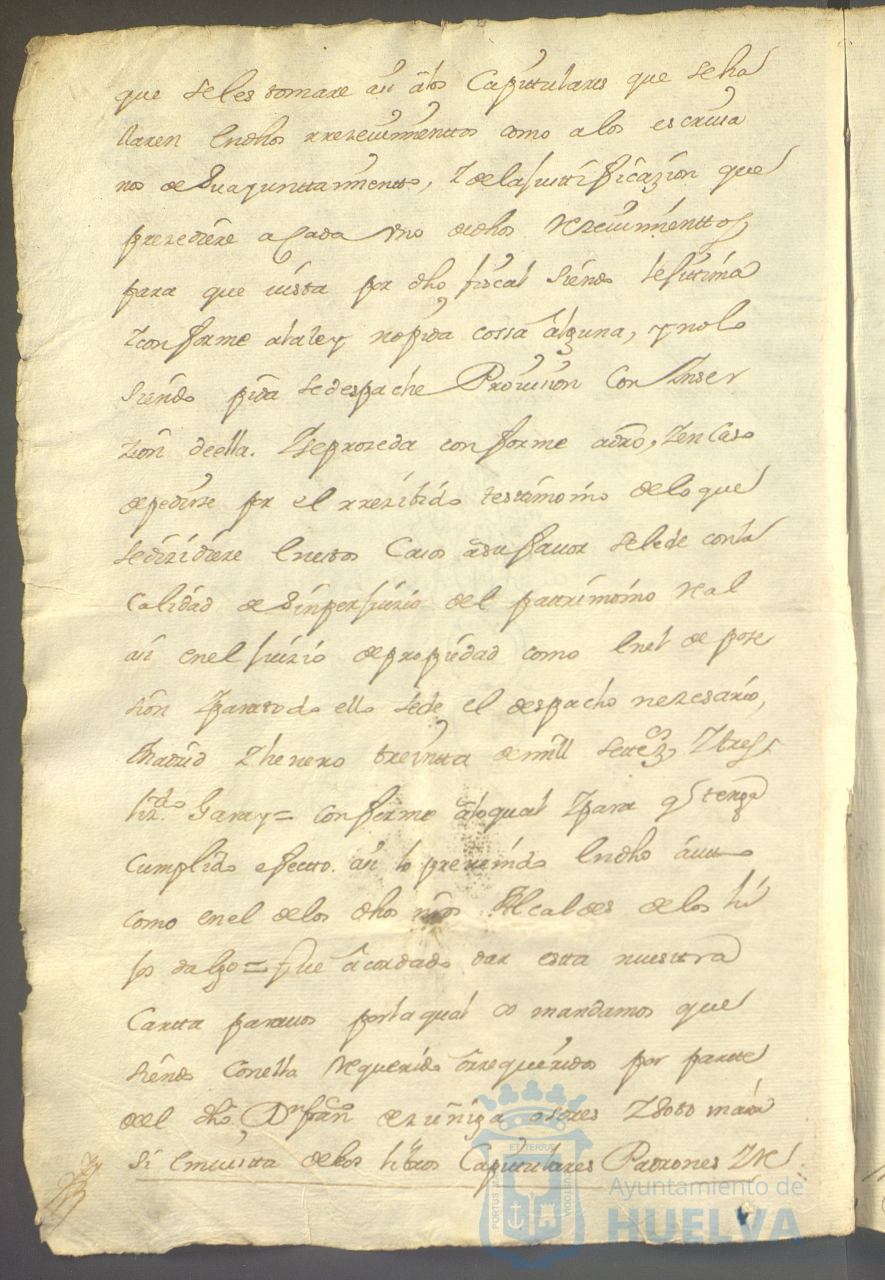 que seles tomare asi a los Capitulares que se ha
llaren en dhos rrezeuimientos como a los escriua
nos de su ayuntamiento, Y de la justificazion que
prezediere a cada uno de dhos Rezeuimienttos
para que uista por dho fiscal siendo lexitima
Y conforme a la ley no pida cossa alguna, y nolo
siendo pida se despache Prouision con Inser
zion de ella. Y se prozeda conforme a dro, Y en Caso
de pedirse por el rrezibido testimonio de lo que
se dizidiere en estos Casos a su fauor se le de con la
Calidad de sin perjuizio del patrimonio Real
asi en el juizio de propiedad como en el de pose
sion Y para todo ello se de el despacho nezesario,
Madrid Y henero treinta de mill settez.os Y tres
liz.do Garay = conforme a lo qual Y para q tenga
Cumplido efecto. asi lo preuenido en dho auto
como en el de los dhos nros Alcaldes de los hi
jos dalgo = fue acordado dar esta nuestra
Cartta para uos por la qual os mandamos que
siendo Con ella Requerido o rrequeridos por partte
del dho Dn fran.co de zuñiga osores Y soto maior
si en uista de los libros Capitulares Padrones Y Re
ET TERRAE
PORTUS
CUSTODIA
Ayuntamiento de
HUELVA